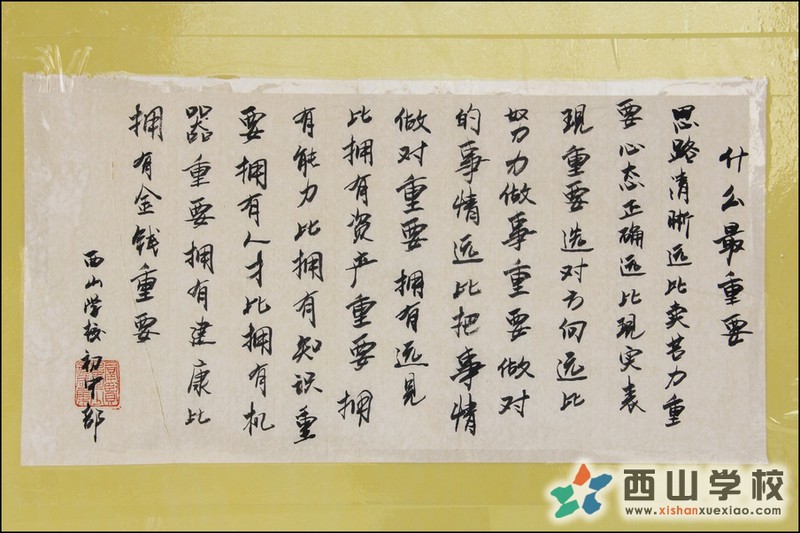 什么最重要
思路清晰远比卖苦力重
要心态正确远比現实表
現重要选对方向远比
努力做事重要做对
的事情远比把事情
做对重要 拥有远見
比拥有资产重要 拥
有能力比拥有知识重
要拥有人才比拥有机
器重要拥有建康比
拥有金钱重要
西山学校初中部
西山学校
www.xishanxuexiao.com